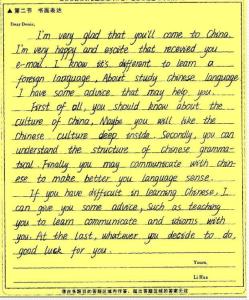 ▲第二节 书面表达
Dear Denis,
I'm very glad that you'll come to China.
I'm very happy and excite that recevied you
e-mail. I know it's different to learn a
foreign language. About study chinese language
I have some advice that may help you.
First of all, you should know about the
culture of China, Maybe you will like the
Chinese culture deep inside. Secondly, you can
understand the structure of chinese gramma-
tical. Finally you may communicate with chin-
ese to make better you language sense.
If you have difficult in learning Chinese, I
can give you some advice, Such as teaching
you to learn communicate and idioms with
you. At the last, whatever you decide to do,
good luck for you.
Yours,
Li Hua
请在各题目的答题区域内作答，超出答题区域的答案无效